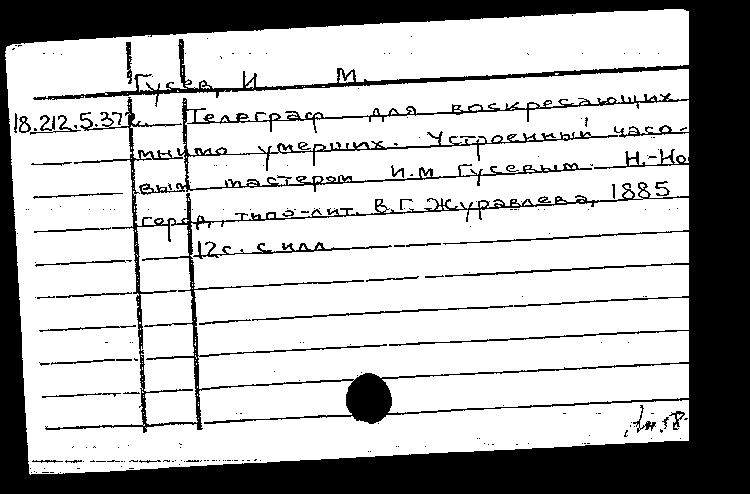 Гусев, И М.
18.212.5.372. Телеграф для воскресающих
мнимо умерших. Устроенный часо-
вым мастером И.М Гусевым. Н.-Но
город, типо-лит. В.Г. Журавлева, 1885
12с. с илл